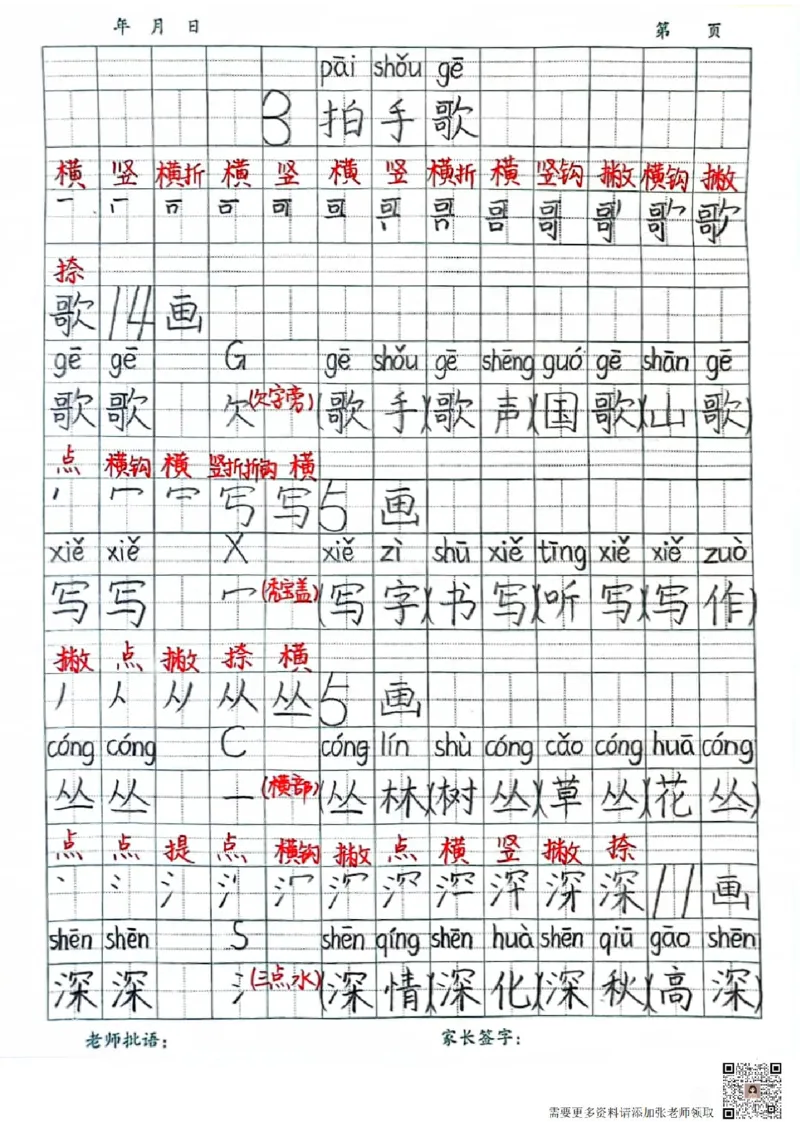 年 月 日 第 页
pāi shǒu gē
3 拍手歌
横 竖 横折 横 竖 横 竖 横折 横 竖钩 撇 横钩 撇
捺
歌 14画
gē gē G gē shǒu gē shēng guó gē shān gē
歌 歌 欠(欠字旁)(歌手)(歌声)(国歌)(山歌)
点 横钩 横 竖折折钩 横
写 写 5画
xiě xiě X xiě zì shū xiě tīng xiě xiě zuò
写 写 冖(秃宝盖)(写字)(书写)(听写)(写作)
撇 点 撇 捺 横
丿 人 从 丛 5画
cóng cóng C cóng lín shù cóng cǎo cóng huā cóng
丛 丛 一(横部)(丛林)(树丛)(草丛)(花丛)
点 点 提 点 横钩 撇 点 横 竖 撇 捺
深 深 11画
shēn shēn S shēn qíng shēn huà shēn qiū gāo shēn
深 深 氵(三点水)(深情)(深化)(深秋)(高深)
老师批语: 家长签字:
需要更多资料请添加张老师领取